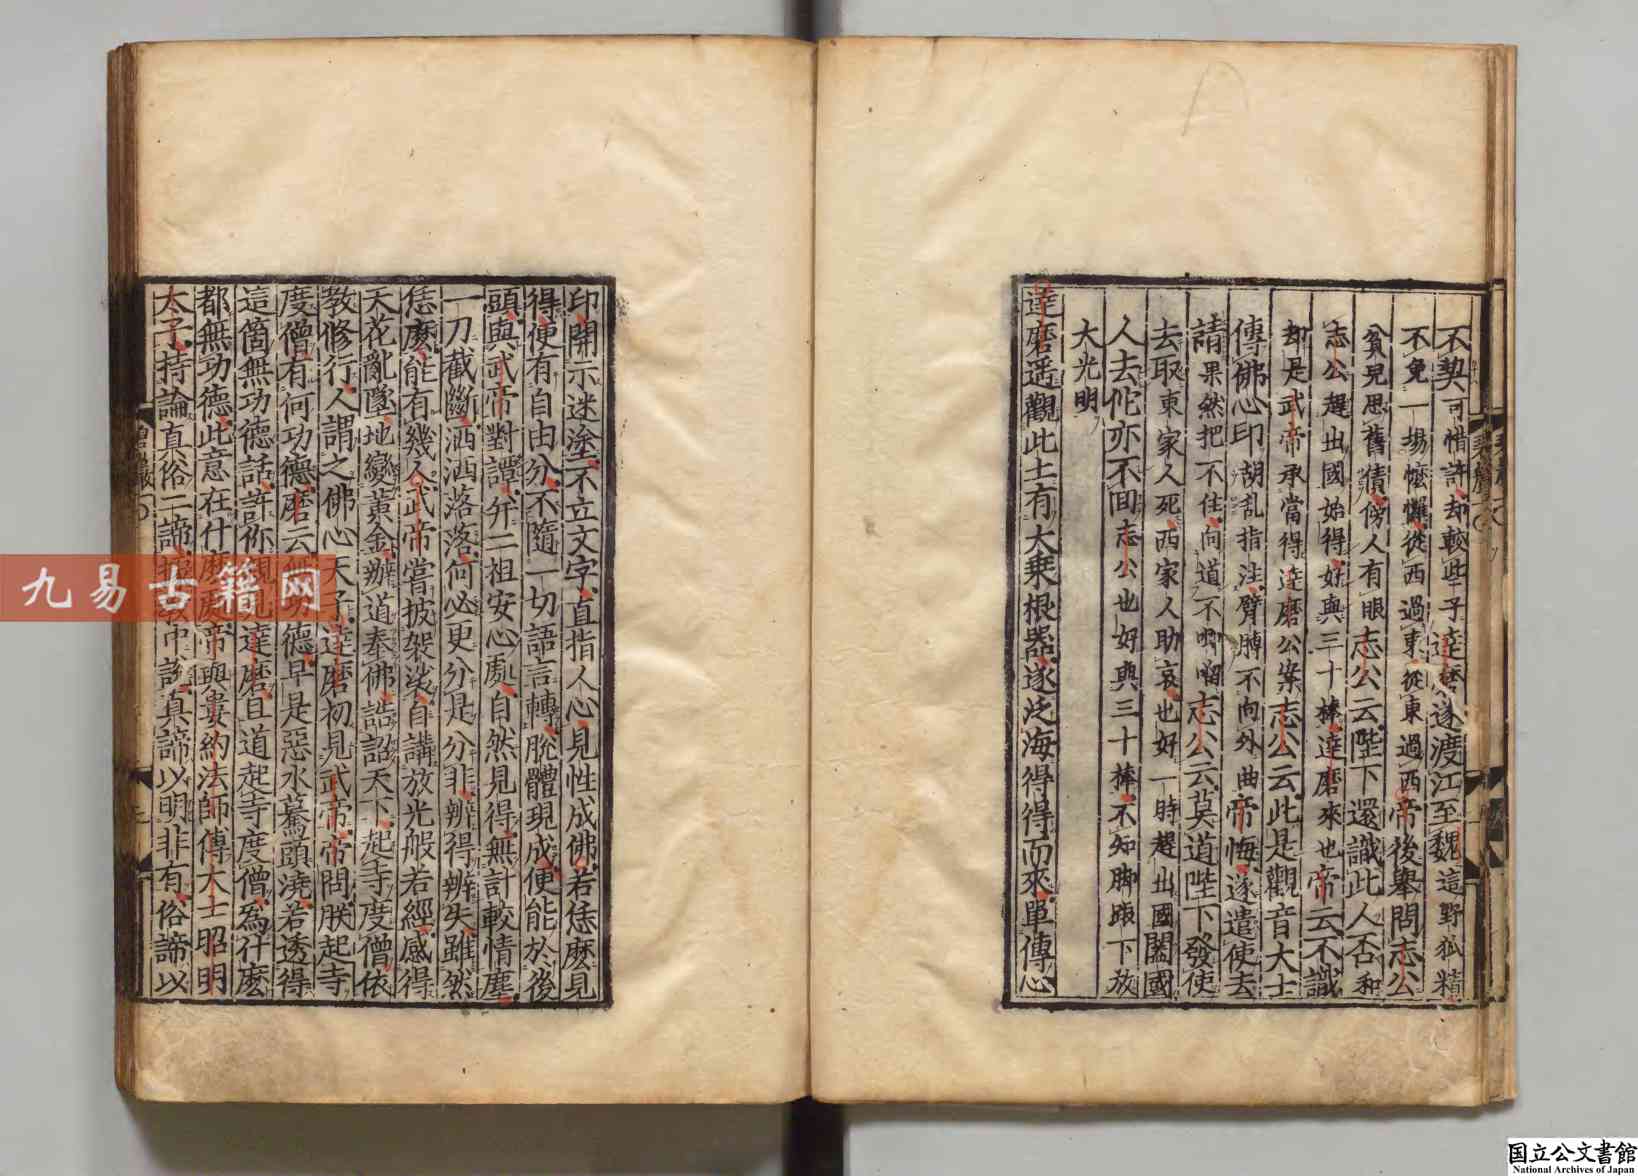 不契可惜許却較些子達磨遂渡江至魏這野狐精
不免一場懡㦬從西過東從東過西帝後舉問志公
貧兒思舊債傍人有眼志公云陛下還識此人否和
志公趕出國始得好與三十棒達磨來也帝云不識
却是武帝承當得達磨公案志公云此是觀音大士
傳佛心印胡亂指注臂膊不向外曲帝悔遂遣使去
請果然把不住向道不唧㗤志公云莫道陛下發使
去取東家人死西家人助哀也好一時趕出國闔國
人去佗亦不回志公也好與三十棒不知脚跟下放
大光明
達磨遥觀此土有大乗根器遂泛海得得而來單傳心
印開示迷塗不立文字直指人心見性成佛若恁麽見
得便有自由分不隨一切語言轉脫體現成便能於後
頭與武帝對譚并二祖安心處自然見得無計較情塵
一刀截斷洒洒落落何必更分是分非辨得辨失雖然
恁麽能有幾人武帝嘗披袈裟自講放光般若經感得
天花亂墜地變黃金辦道奉佛誥詔天下起寺度僧依
教修行人謂之佛心天子達磨初見武帝帝問朕起寺
度僧有何功德磨云無功德早是惡水驀頭澆若透得
這箇無功德話許你親見達磨且道起寺度僧為什麽
都無功德此意在什麽處帝與婁約法師傅大士昭明
太子持論真俗二諦據教中說真諦以明非有俗諦以
碧巖一
九易古籍网
国立公文書館
National Archives of Japan